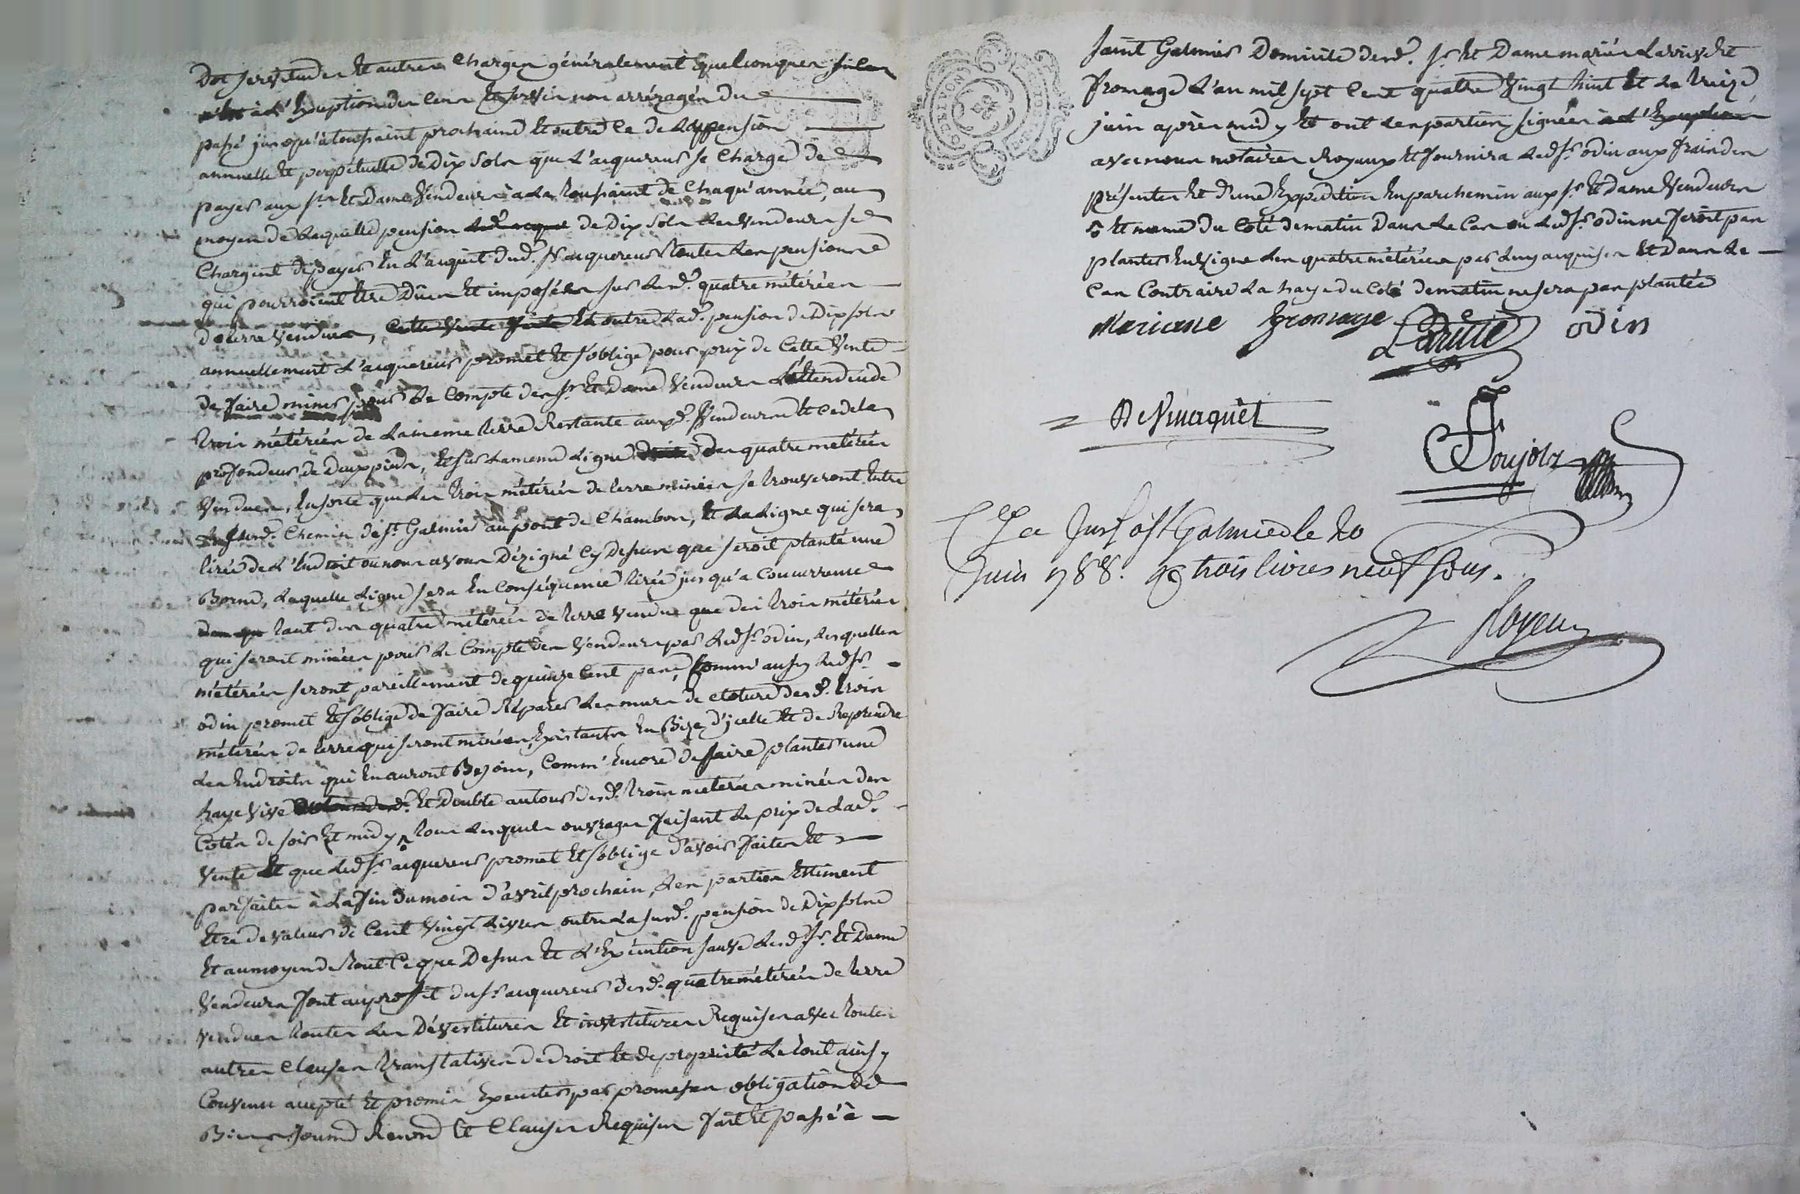 Dot servitudes et autres charges généralement quelconques
à l'exeption des cens et servis non arréragés du
passé jusqu'a toussaint prochaine et outre ce de la pension
annuelle et perpétuelle de Dix sols que l'acquereur se charge de
payer aux srs et Dame Vendeurs à la toussaint de chaqu'année, au
moyen de laquelle pension de Dix sols les vendeurs se
chargent de payer en l'acquit dud. sr acquereur toutes les pensions
qui pourroient être Dües et imposées sur lesd. quatre métérées
de terre vendues, cette vente faite et outre lad. pension de Dix sols
annuellement l'acquereur promet et s'oblige pour prix de cette vente
de faire miner pour le compte des sr et Dame Vendeurs l'étendüe de
trois métérées de la meme terre Restante auxd. Vendeurs et ce de la
profondeur de Deux pieds, et sur la meme ligne des quatre métérées
vendues, ensorte que les trois métérées de terre minées se trouveront entre
le susd. chemin de st. Galmier au pont de Chambon, et la ligne qui sera
tirée de l'endroit ou nous avons Dézigné cy dessus que seroit planté une
Borne, laquelle ligne sera en conséquence tirée jusqu'a concurrence
tant des quatre métérées de terre vendue que des trois métérées
qui seront minées pour le compte des vendeurs par led. sr. odin, lesquelles
métérées seront pareillement de quinze cent pas, comm' aussy led. sr.
odin promet et s'oblige de faire Réparer les murs de cloture desd. trois
métérées de terre qui seront minées, existants en Bize d'icelle et de Reprendre
les endroits qui en auront Besoin, comm' encore de faire planter une
haye vive et double autour desd. trois métérées minées des
cotés de soir et midy, tous lesquels ouvrages faisant le prix de lad.
vente et que led. sr. acquereur promet et s'oblige d'avoir faites et
parfaites à la fin du mois d'avril prochain, les parties estiment
être de valeur de cent vingt livres outre la susd. pension de Dix sols
et au moyen de tout ce que Dessus et l'exécution sauve lesd. sr. et Dame
vendeurs font au proffit du sr. acquereur desd. quatre métérées de terre
vendues toutes les Dévestitures et investitures Requises avec toutes
autres clauses translatives de droit et de propriété le tout ainsy
convenu accepté et promis exécuter par promesses obligation de
Biens soumis Renond. et clauses Requises fait et passé à
saint Galmier Domicile desd. sr. et Dame mariés Larive et
fromage l'an mil sept cent quatre vingt huit et le treize
juin après midy et ont les parties signées à l'exeption
avec nous notaires Royaux et fournira led. sr. odin aux frais des
présentes et d'une expédition en parchemin aux sr. et dame vendeurs
et meme du coté de matin dans le cas ou led. sr. odin ne feroit pas
planter en vigne les quatre métérées par luy acquises et dans le
cas contraire la haye du coté de matin ne sera pas plantée
Mariane fromage Larive odin
Devincquet
Ponjolz
Ce Jusf ost Galmied le 20
Juin 1788. R trois livres neuf sous.
Royeu